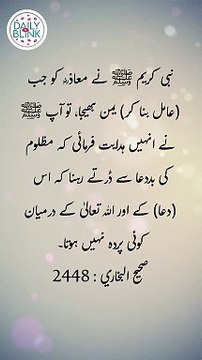 DAILY
BLINK
نبی کریم ﷺ نے معاذؓ کو جب
(عامل بنا کر) یمن بھیجا، تو آپ ﷺ
نے انہیں ہدایت فرمائی کہ مظلوم
کی بددعا سے ڈرتے رہنا کہ اس
(دعا) کے اور اللہ تعالیٰ کے درمیان
کوئی پردہ نہیں ہوتا۔
صحیح البخاري : 2448